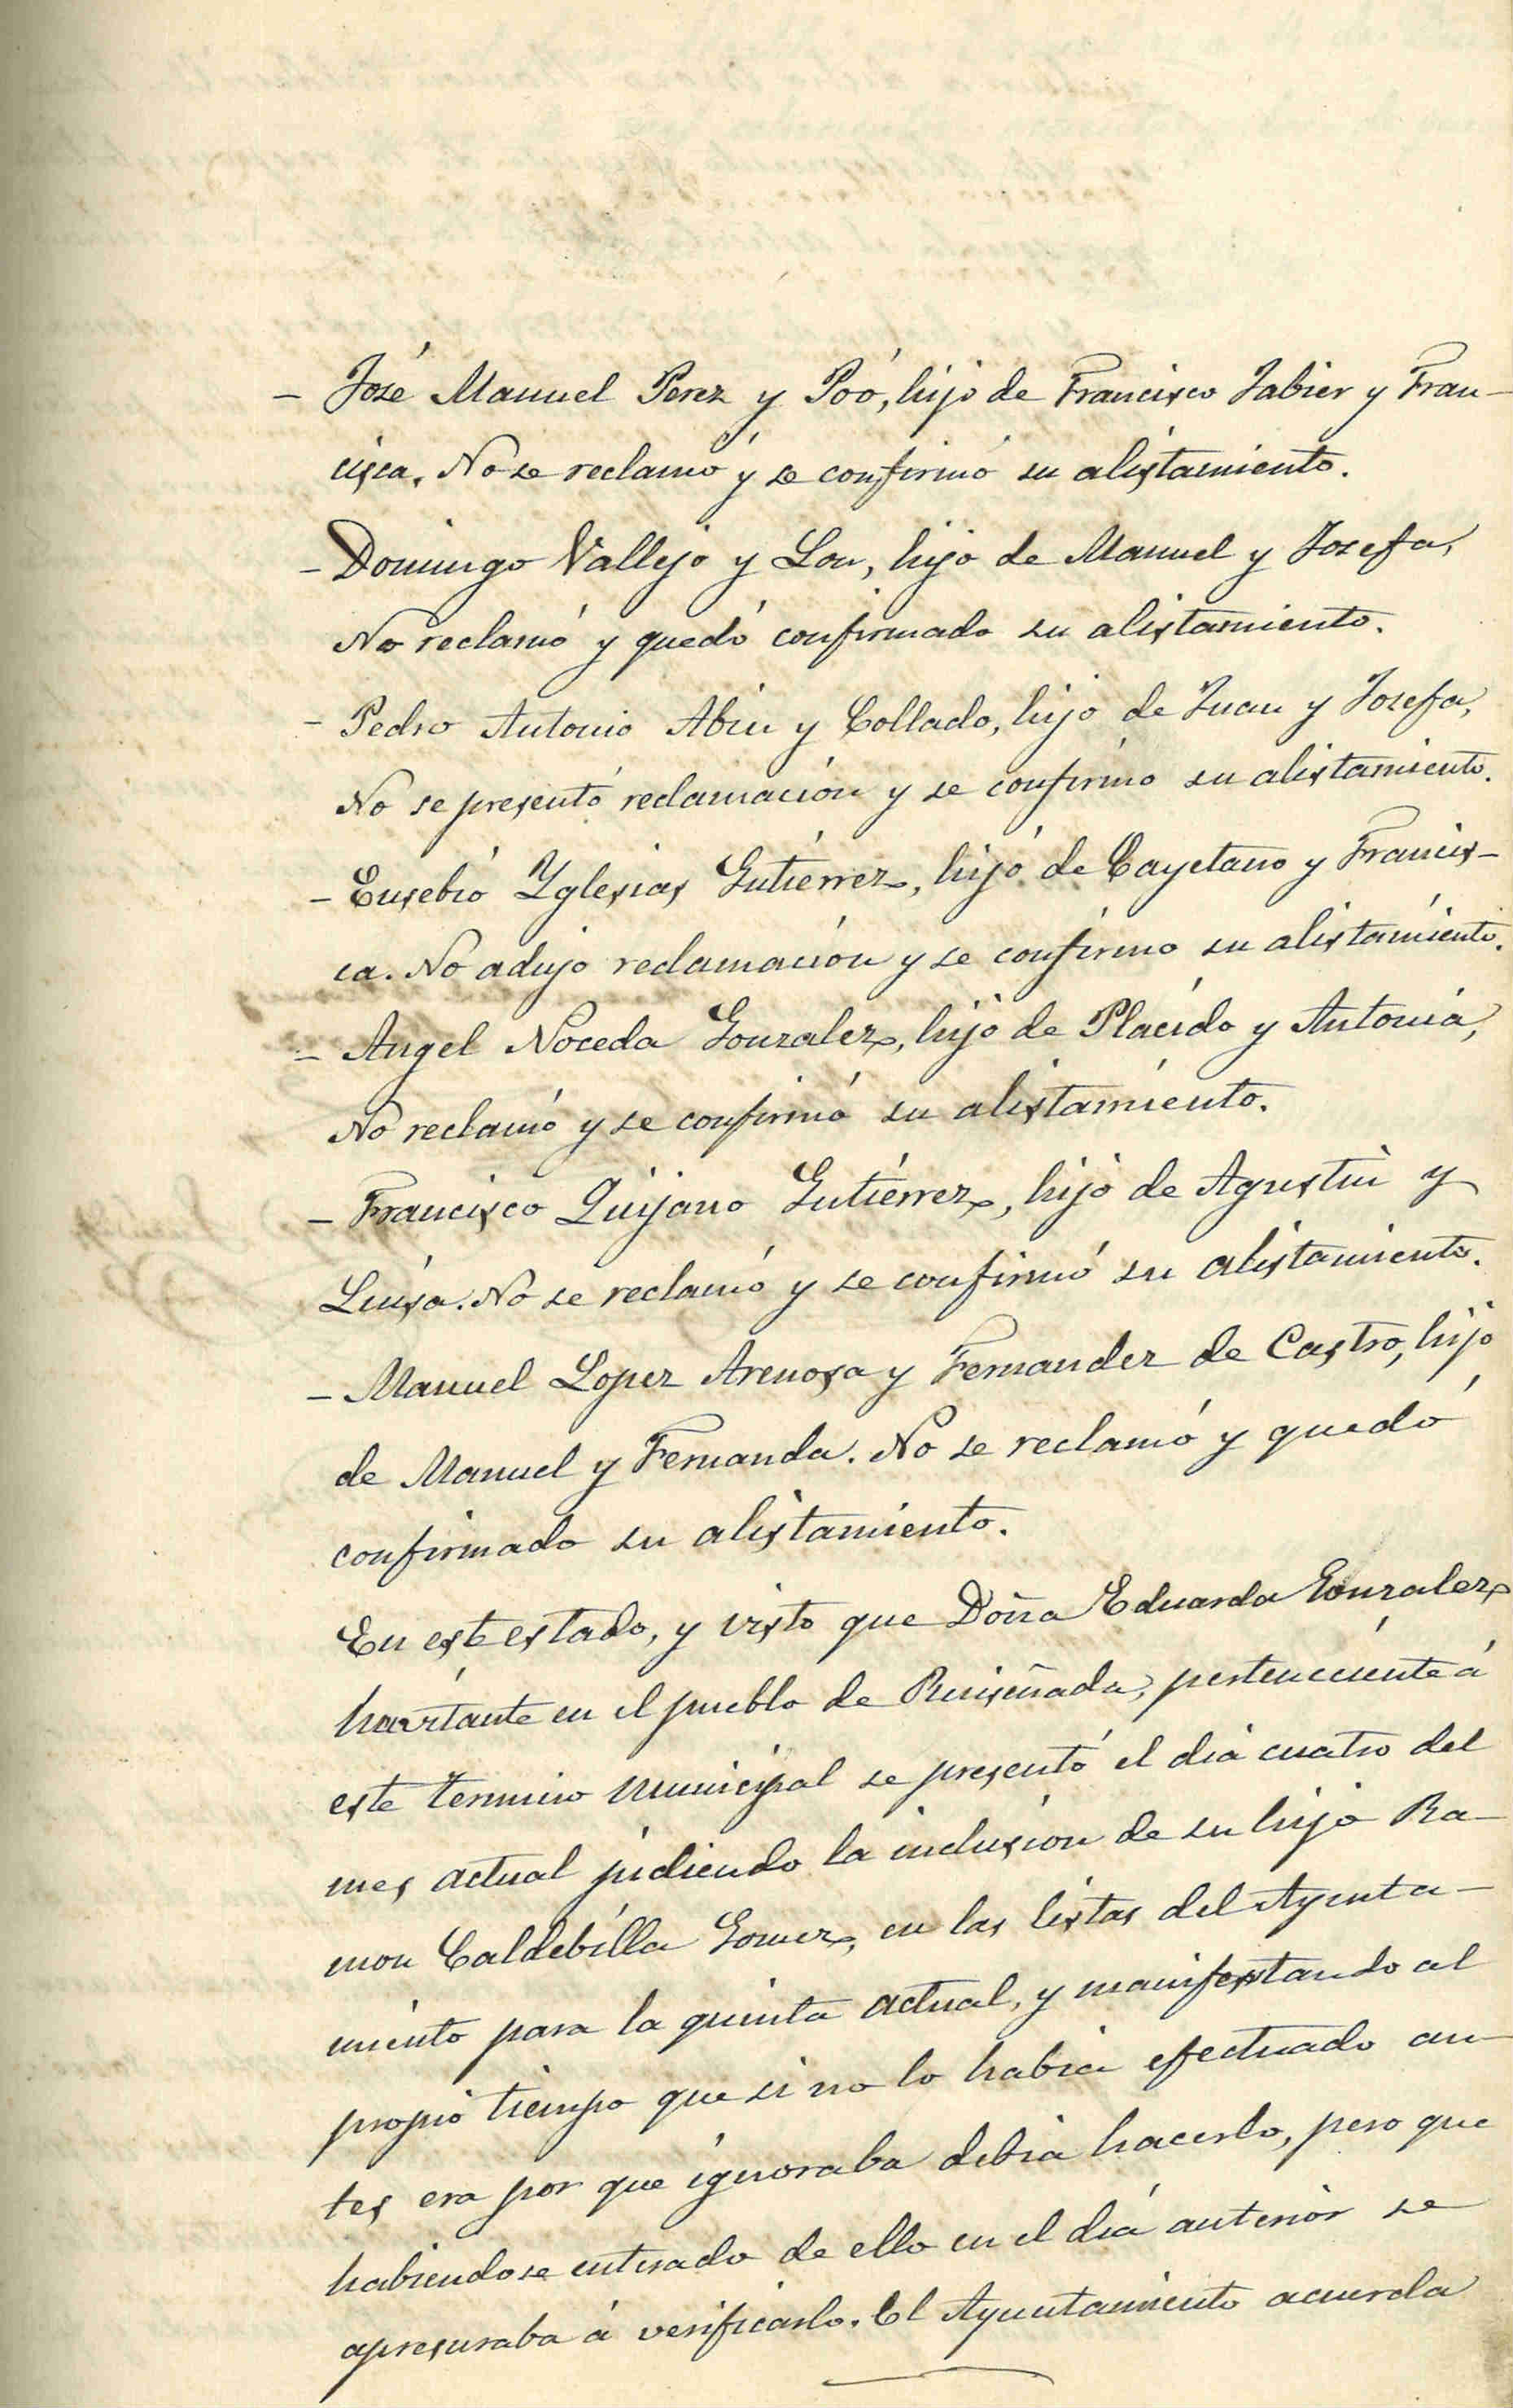 – José Manuel Perez y Poó, hijo de Francisco Jabier y Fran-
cisca. No se reclamó y se confirmó su alistamiento.
– Domingo Vallejo y Lou, hijo de Manuel y Josefa,
No reclamó y quedó confirmado su alistamiento.
– Pedro Antonio Abin y Collado, hijo de Juan y Josefa,
No se presentó reclamación y se confirmo su alistamiento.
– Eusebio Yglesias Gutierrez, hijo de Cayetano y Francis-
ca. No adujo reclamación y se confirmo su alistamiento.
– Angel Noceda Gonzalez, hijo de Placido y Antonia,
No reclamó y se confirmó su alistamiento.
– Francisco Quijano Gutierrez, hijo de Agustin y
Luisa. No se reclamó y se confirmó su alistamiento.
– Manuel Lopez Arenosa y Fernandez de Castro, hijo
de Manuel y Fernanda. No se reclamó y quedó
confirmado su alistamiento.
En este estado, y visto que Doña Eduarda Gonzalez
havitante en el pueblo de Ruiseñada, perteneciente á
este termino municipal se presentó el dia cuatro del
mes actual pidiendo la inclusion de su hijo Ra-
mon Caldebilla Gomez, en las listas del Ayunta-
miento para la quinta actual, y manifestando al
propio tiempo que si no lo habia efectuado an-
tes era por que ignoraba debia hacerlo, pero que
habiendose enterado de ello en el dia anterior se
apresuraba á verificarlo. El Ayuntamiento acuerda